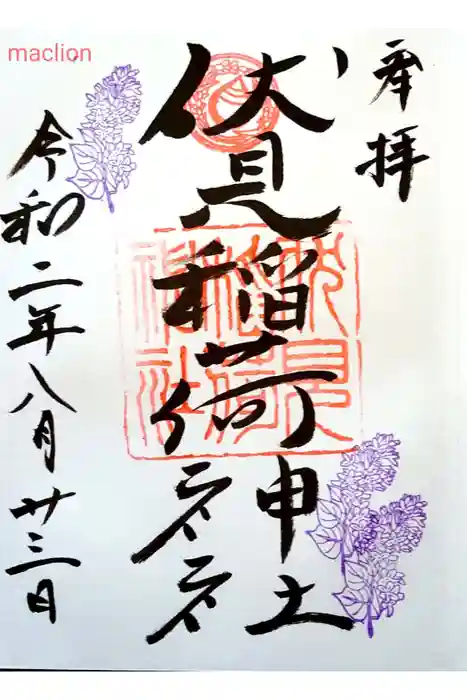 maclion
奉拝
伏見稲荷神社
令和二年八月廿三日
伏見
稲荷
神社